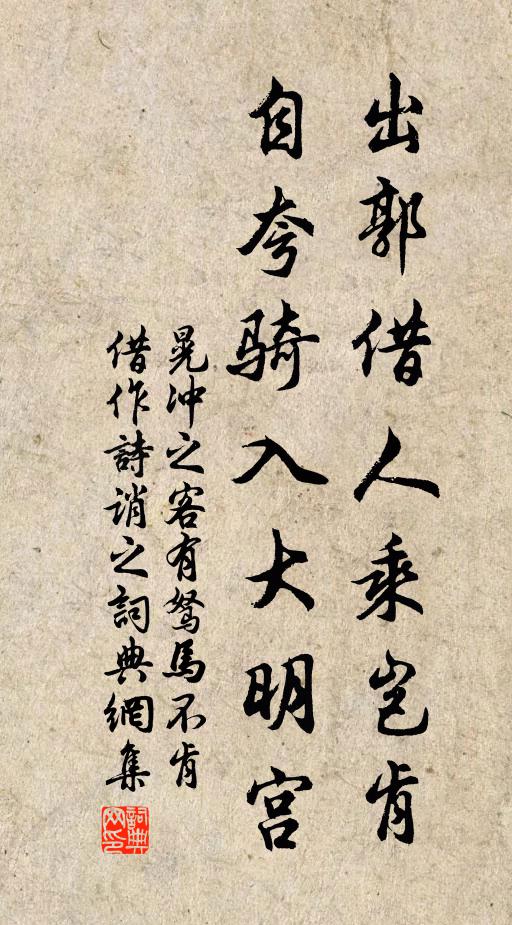 出郭借人乘岂肯
自夸骑入大明宫
晁冲之客有驽马不肯
借作詩誚之詞典網集
詞典
网印